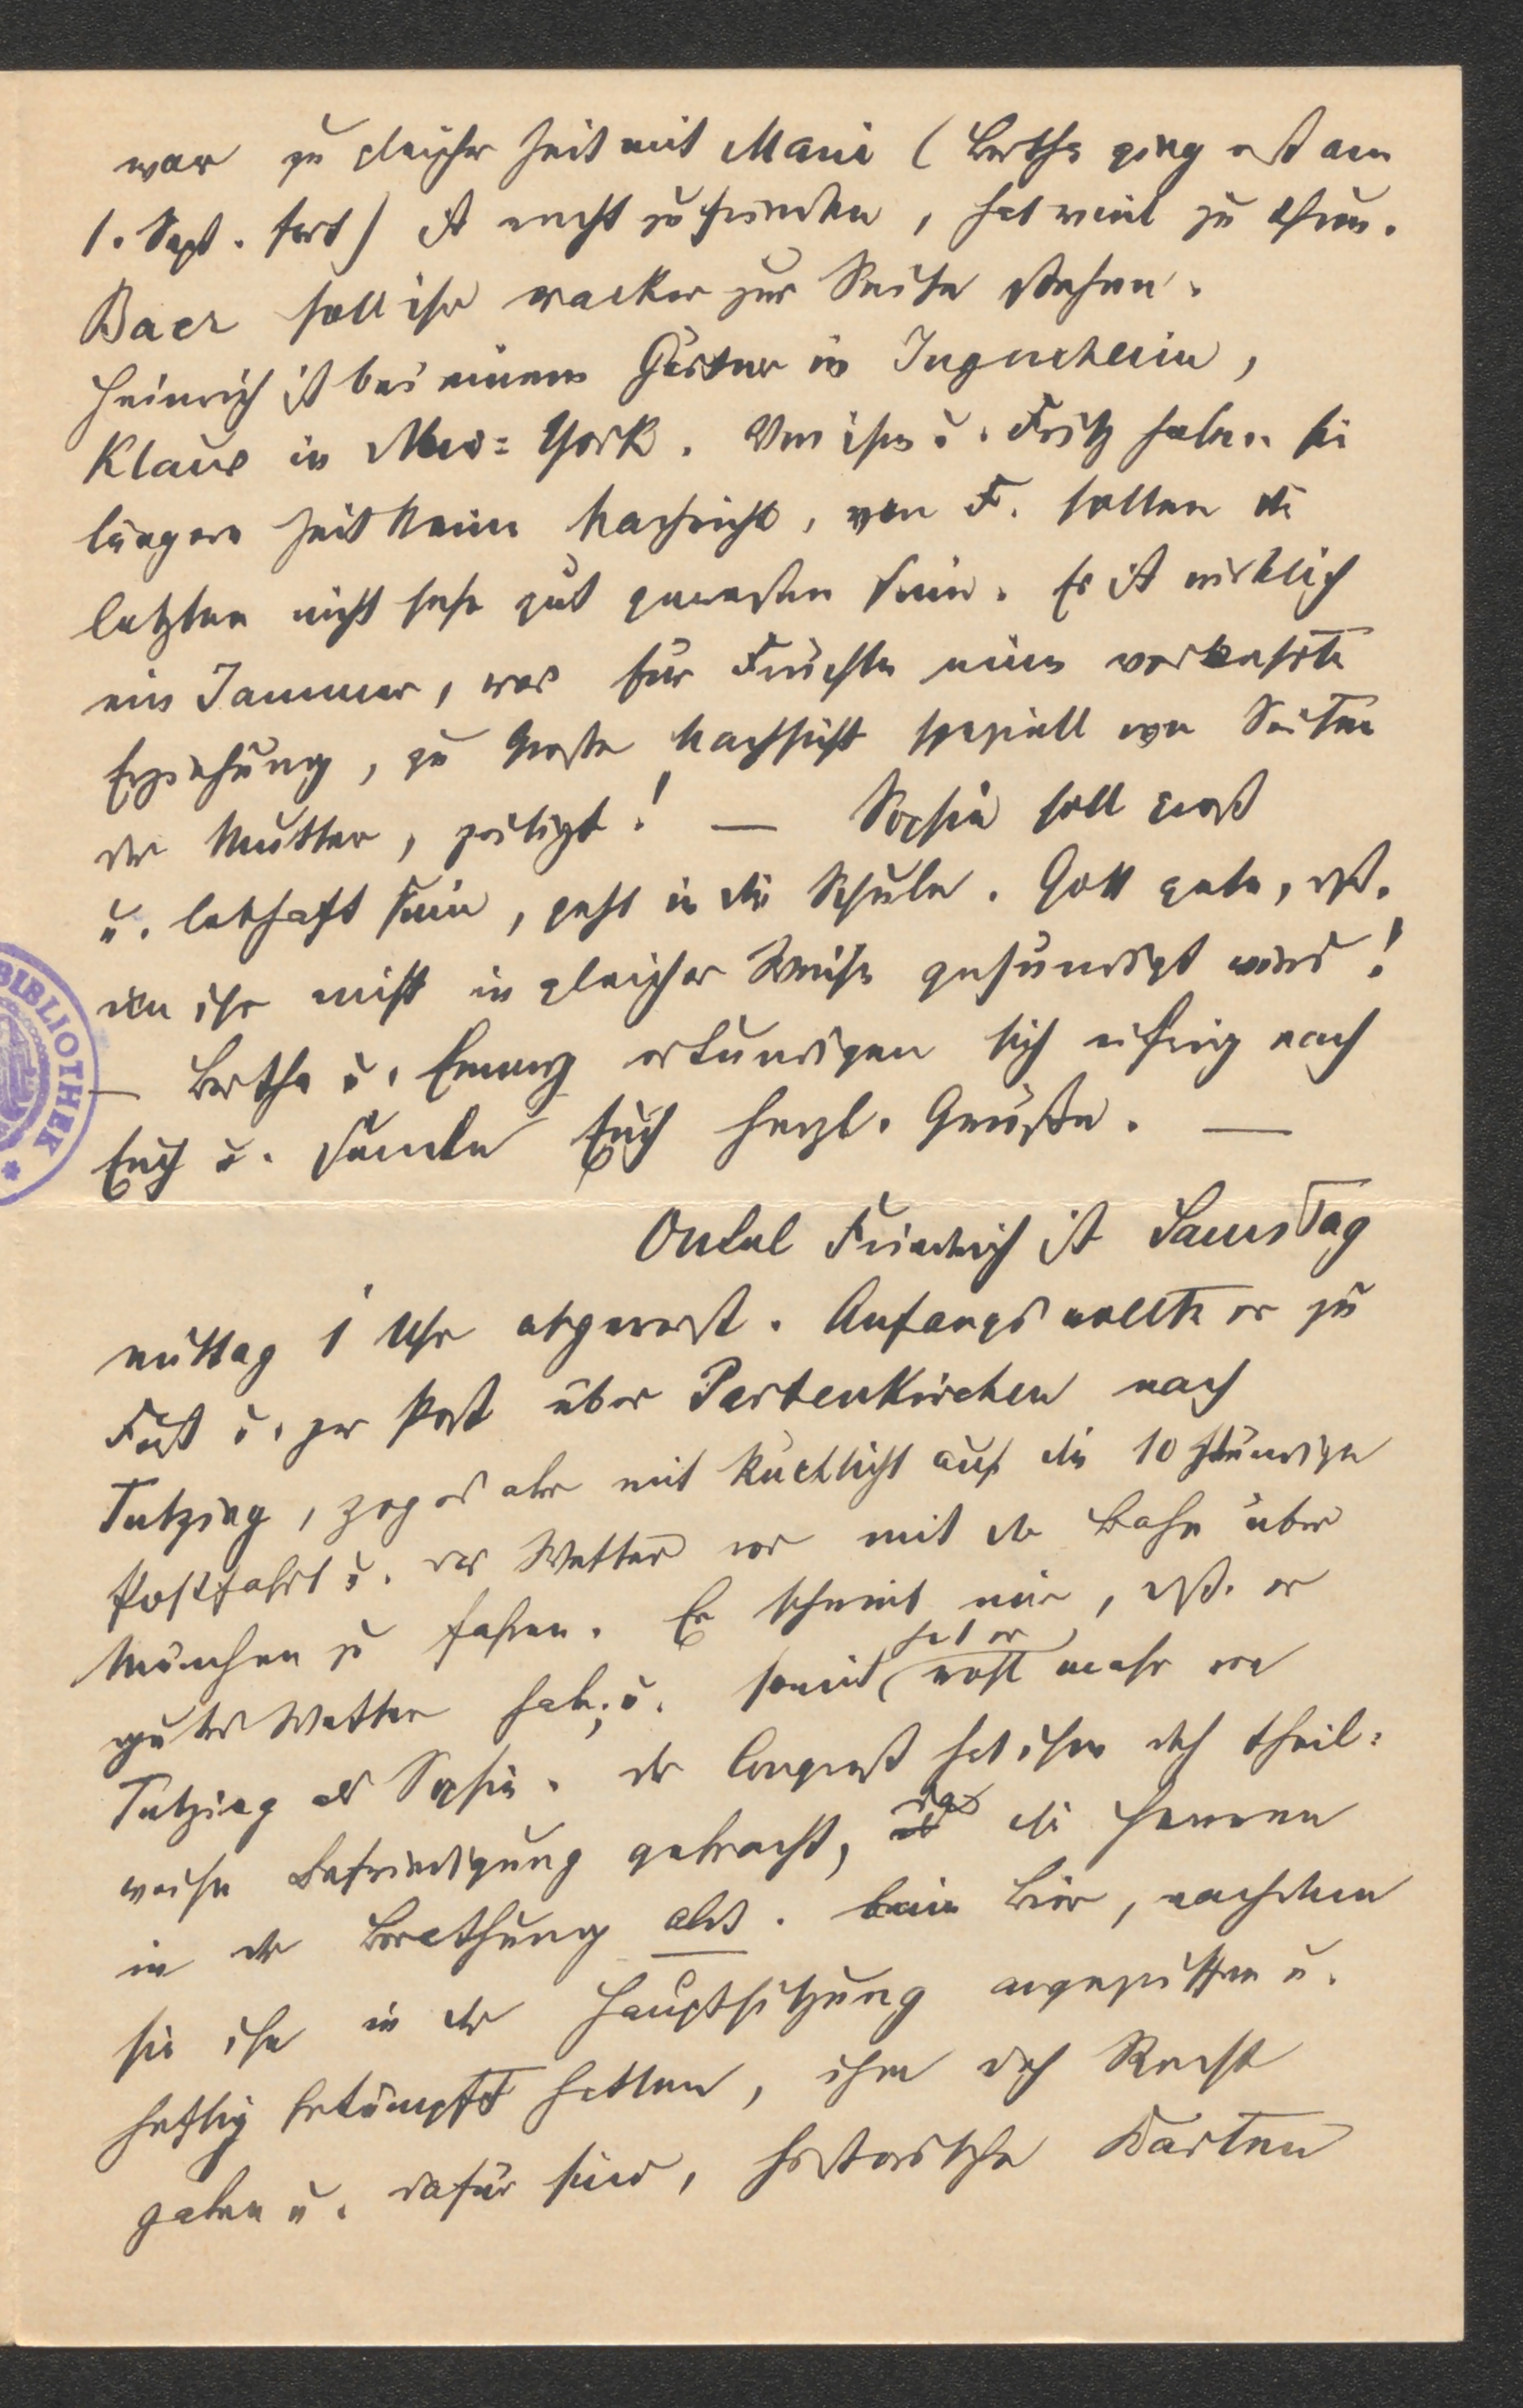 war zu gleicher Zeit mit Marie (Bertha ging erst am
1. Sept. fort) ist recht zufrieden, hat viel zu thun.
Baer soll ihr wacker zur Seite stehen.
Heinrich ist bei einem Gärtner in Jugenheim,
Klaus in New-York. Von ihm u. Fritz haben sie
längere Zeit keine Nachricht, von F. sollen die
letzten nicht sehr gut gewesen sein. Es ist wirklich
ein Jammer, was für Früchte eine verkehrte
Erziehung, zu große Nachsicht speziell von Seiten
der Mutter, zeitigt! — Sophie soll groß
u. lebhaft sein, geht in die Schule. Gott gebe, dß.
an ihr nicht in gleicher Weise gesündigt wird!
— Bertha u. Emmy erkundigen sich eifrig nach
Euch u. senden Euch herzl. Grüße. —
Onkel Friedrich ist Samstag
mittag 1 Uhr abgereist. Anfangs wollte er zu
Fuß u. per Post über Partenkirchen nach
Tutzing, zog es aber mit Rücksicht auf die 10 stündige
Postfahrt u. das Wetter vor mit der Bahn über
München zu fahren. Es scheint mir, dß. er
gutes Wetter habe, u. somit hat er wohl mehr von
Tutzing als Sophie. Der Congreß hat ihm doch theil-
weise Befriedigung gebracht, da die Herren
in der Berathung als. beim Bier, nachdem
sie ihn in der Hauptsitzung angegriffen u.
heftig bekämpft hatten, ihm doch Recht
gaben u. dafür sind, historische Karten
BIBLIOTHEK